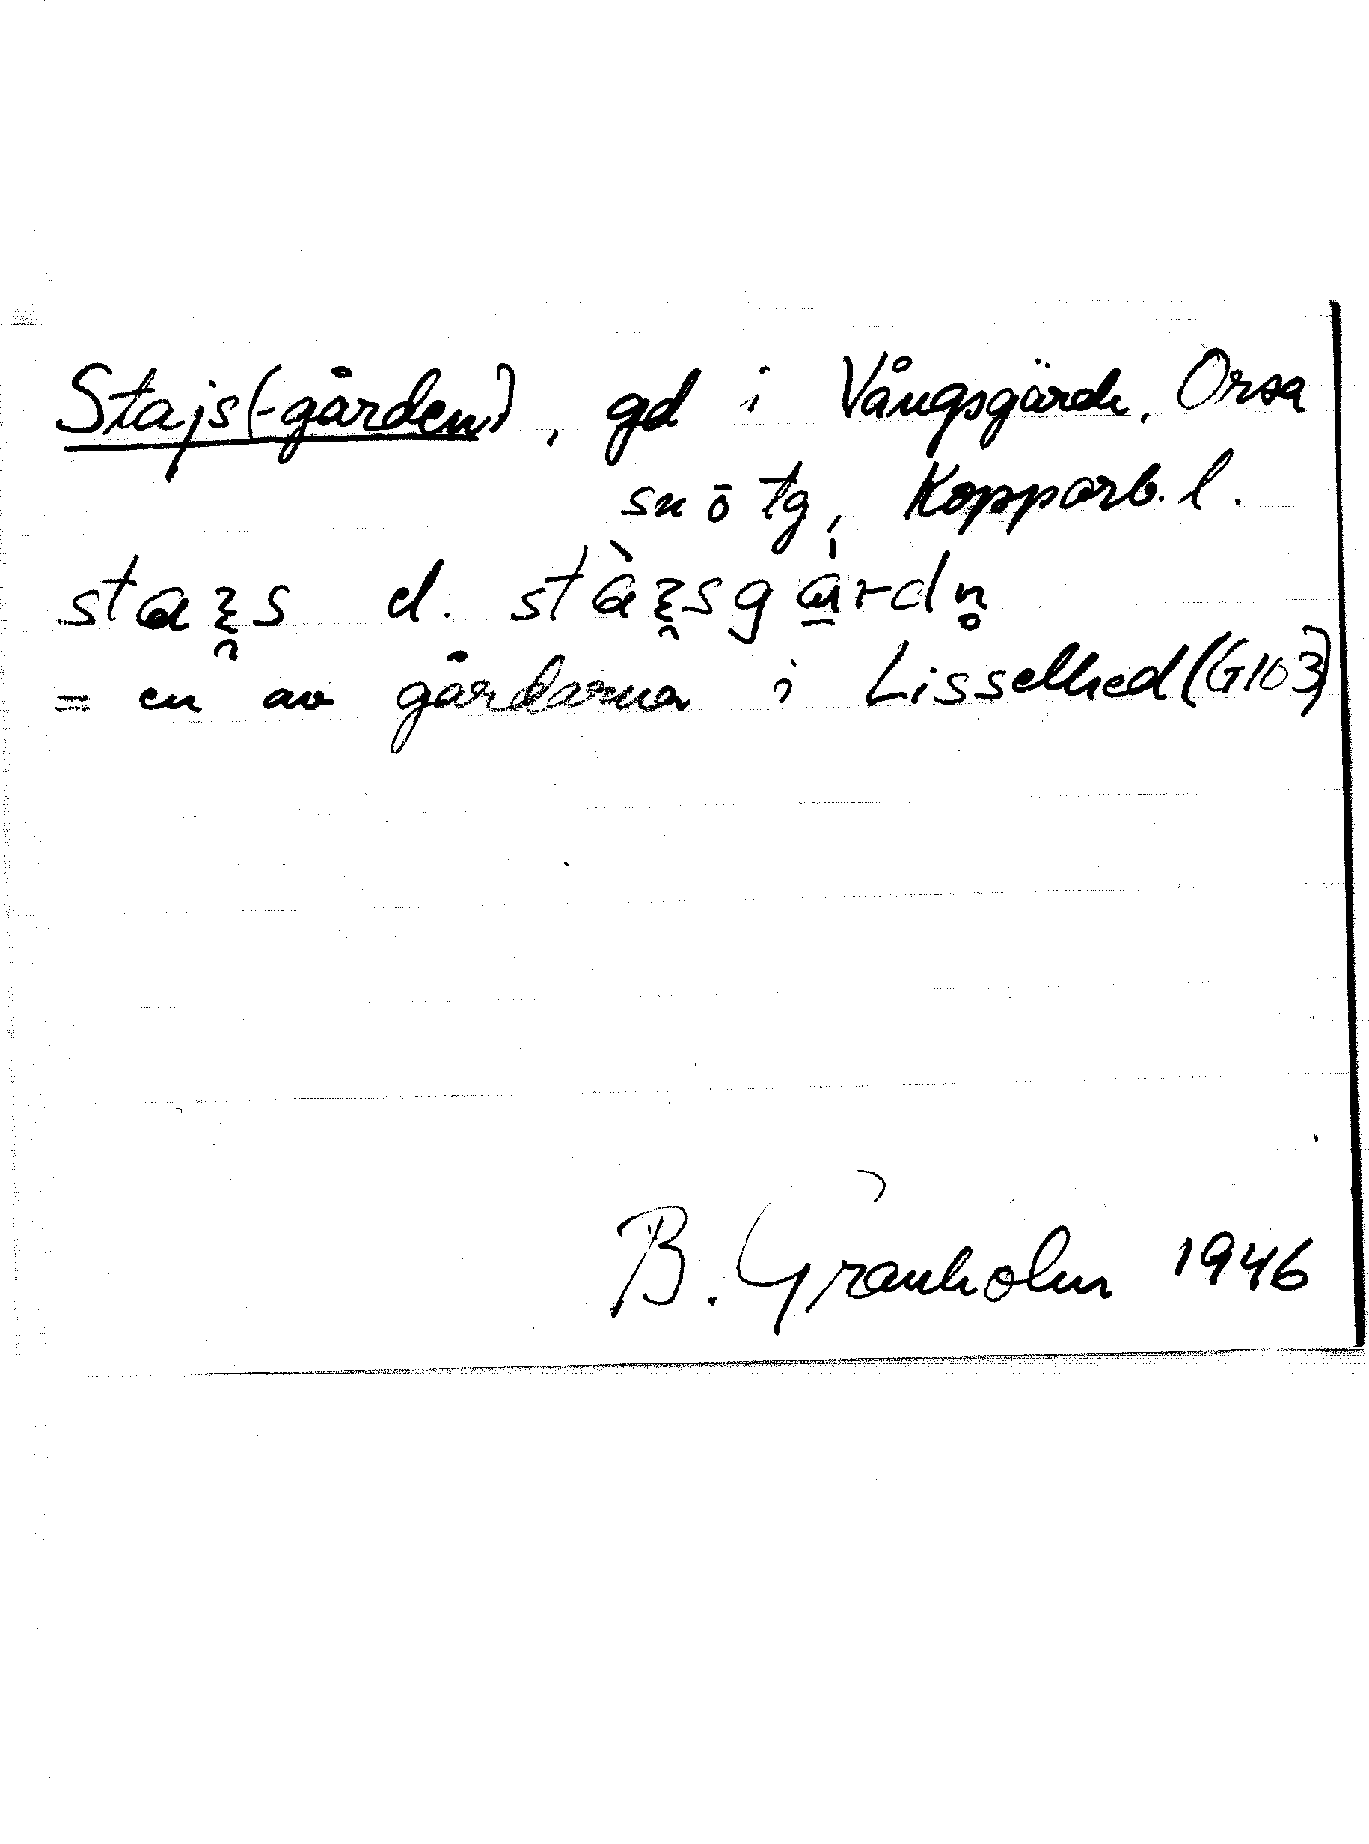 Stajs(-gården), gd i Vångsgärde, Orsa
sn o tg, Kopparb. l.
staız̯s el. stàız̯sgɑ́rdn̥
= en av gårdarna i Lisselhed (G103)
B. Granholm 1946